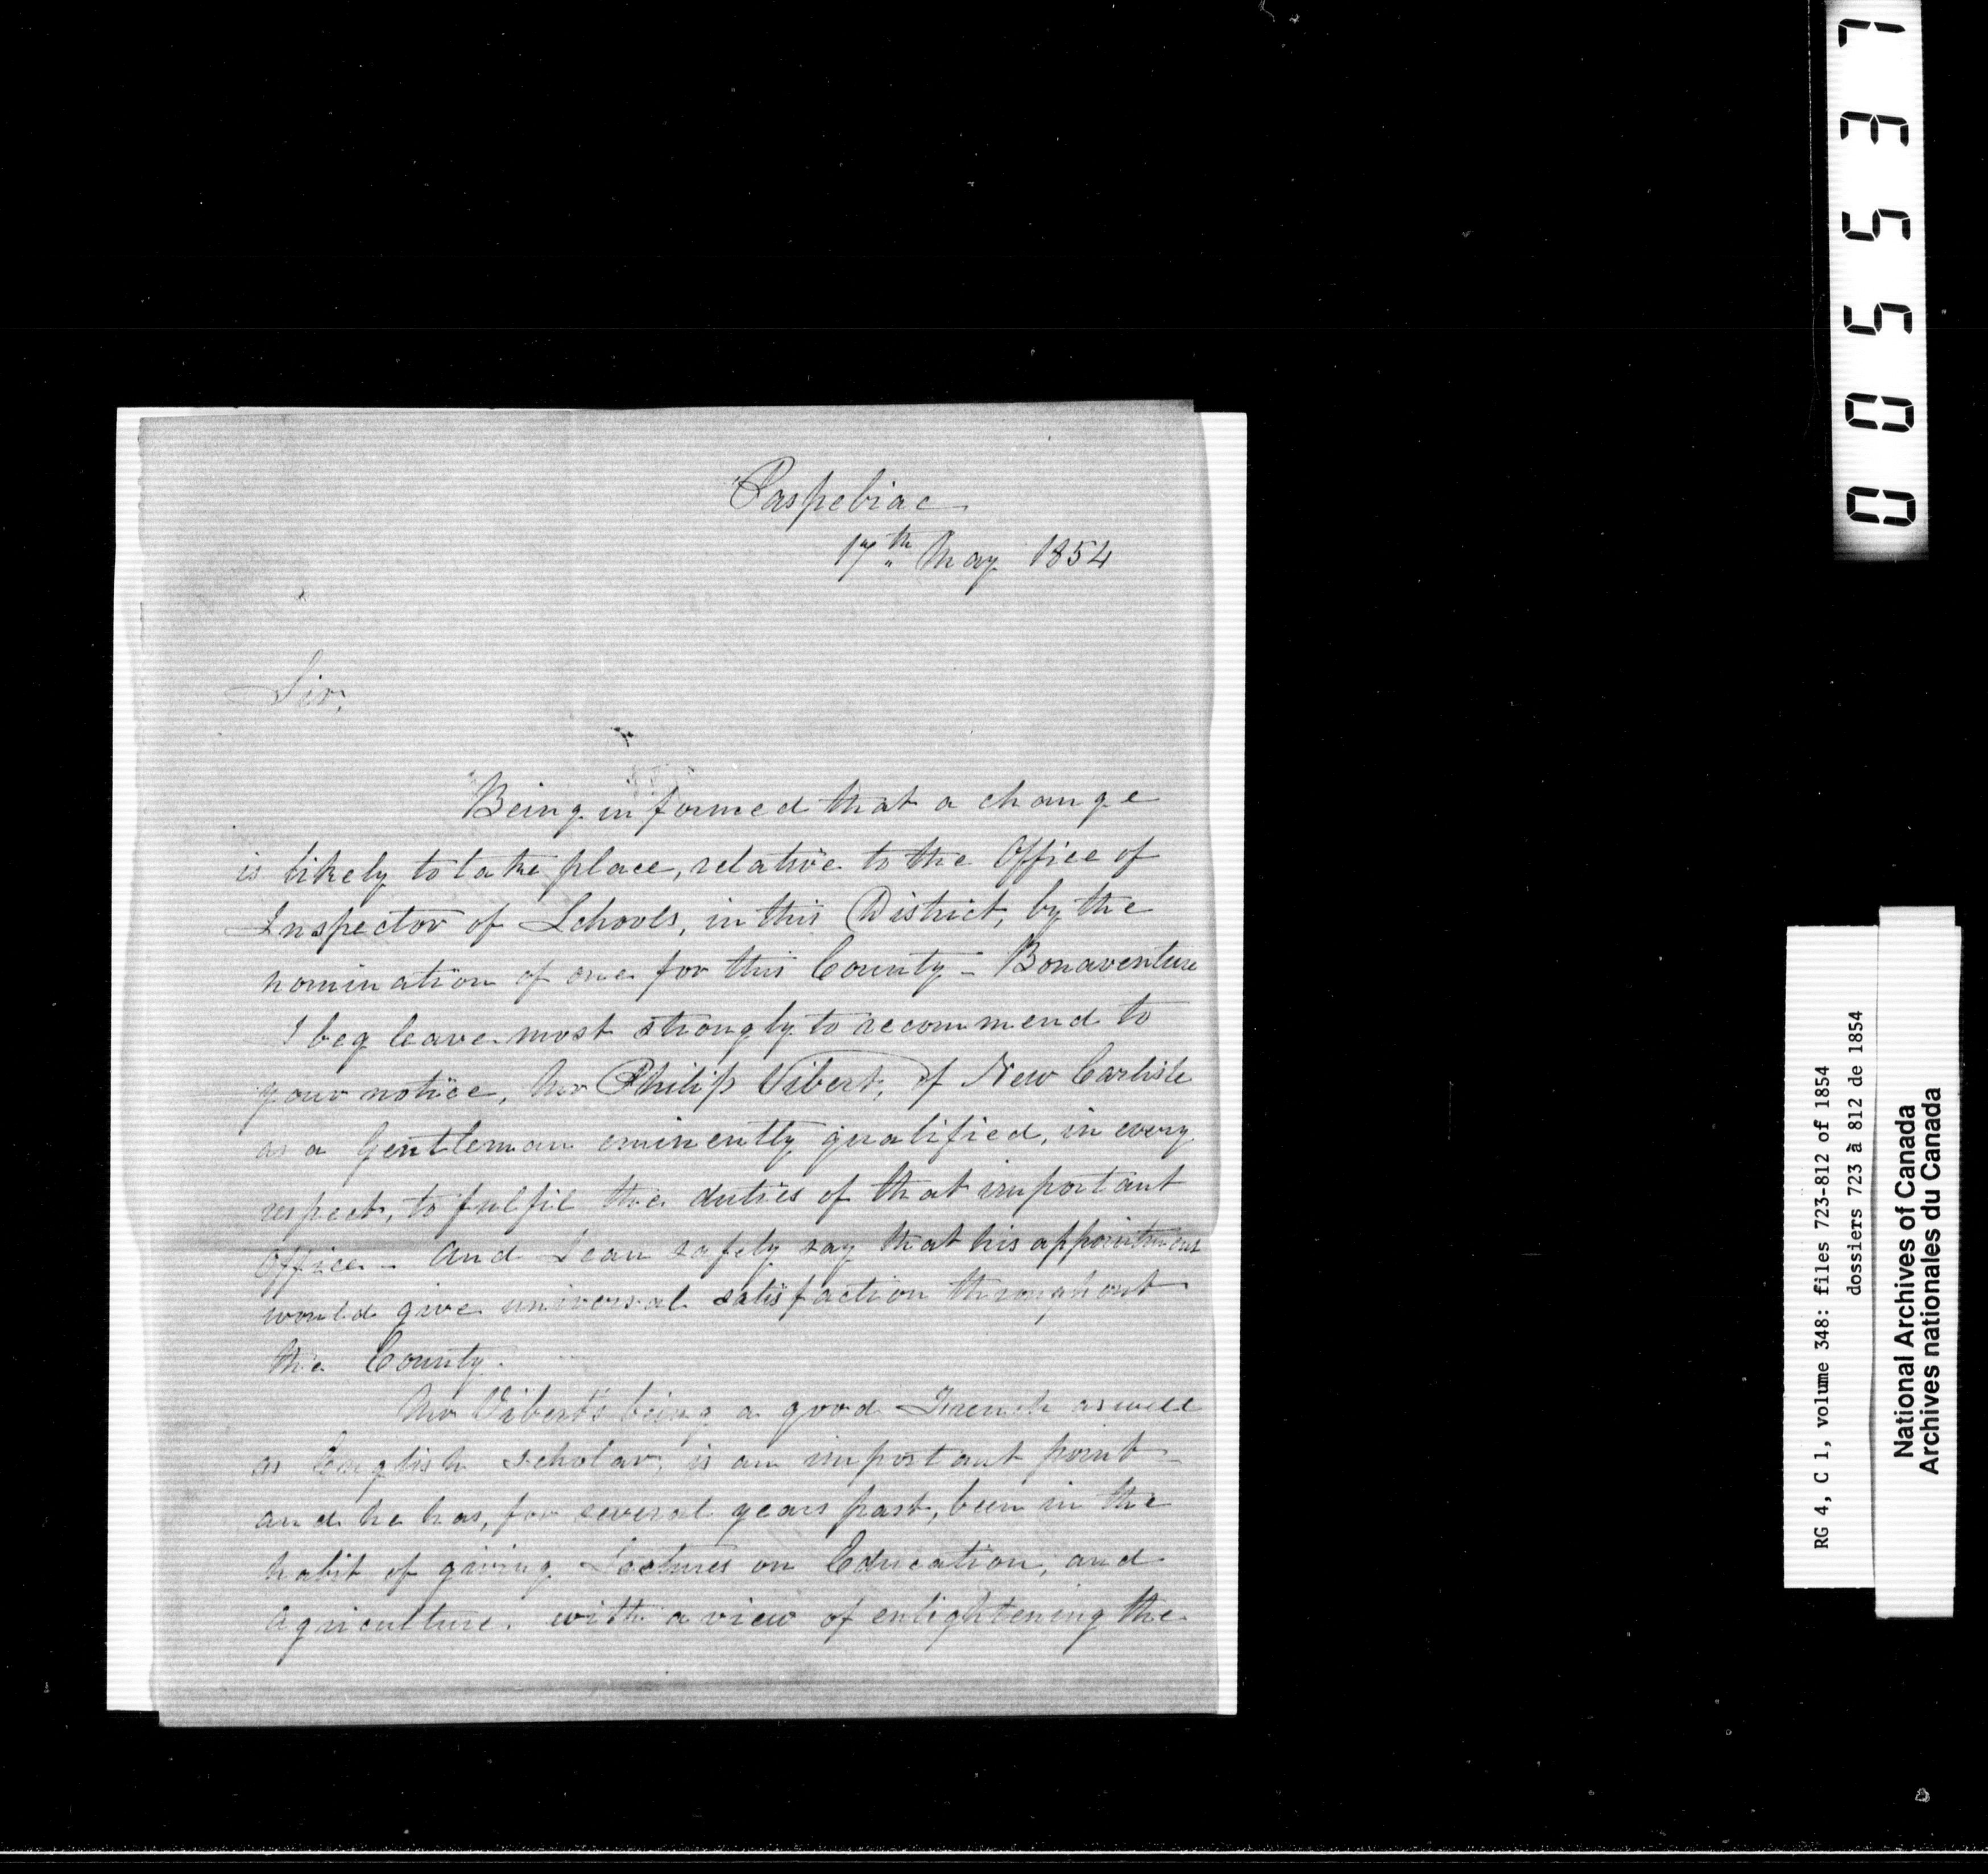 Paspebiac
17th May 1854
Sir,
Being informed that a change
is likely to take place, relative to the Office of
Inspector of Schools, in this District, by the
nomination of one for this County - Bonaventure
I beg leave most strongly to recommend to
your notice, Mr Philip Vibert, of New Carlisle
as a Gentleman eminently qualified, in every
respect, to fulfil the duties of that important
Office - and I can safely say that his appointment
would give universal satisfaction throughout
the County.
Mr Vibert's being a good French as well
as English scholar, is an important point -
and he has, for several years past, been in the
habit of giving Lectures on Education, and
Agriculture. with a view of enlightening the
005537
RG 4, C 1, volume 348: files 723-812 of 1854
dossiers 723 à 812 de 1854
National Archives of Canada
Archives nationales du Canada